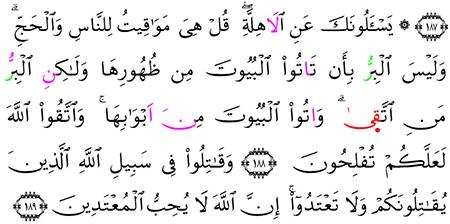 ﴿١٨٧﴾ ۞ يَسْـَٔلُونَكَ عَنِ ٱلَاهِلَّةِۖ قُلْ هِىَ مَوَٰقِيتُ لِلنَّاسِ وَٱلْحَجِّۗ
وَلَيْسَ ٱلْبِرُّ بِأَن تَاتُوا۟ ٱلْبُيُوتَ مِن ظُهُورِهَا وَلَٰكِنِ ٱلْبِرُّ
مَنِ ٱتَّقِىٰۗ وَاتُوا۟ ٱلْبُيُوتَ مِنَ اَبْوَٰبِهَاۚ وَٱتَّقُوا۟ ٱللَّهَ
لَعَلَّكُمْ تُفْلِحُونَ ﴿١٨٨﴾ وَقَٰتِلُوا۟ فِى سَبِيلِ ٱللَّهِ ٱلَّذِينَ
يُقَٰتِلُونَكُمْ وَلَا تَعْتَدُوٓا۟ۚ إِنَّ ٱللَّهَ لَا يُحِبُّ ٱلْمُعْتَدِينَ ﴿١٨٩﴾